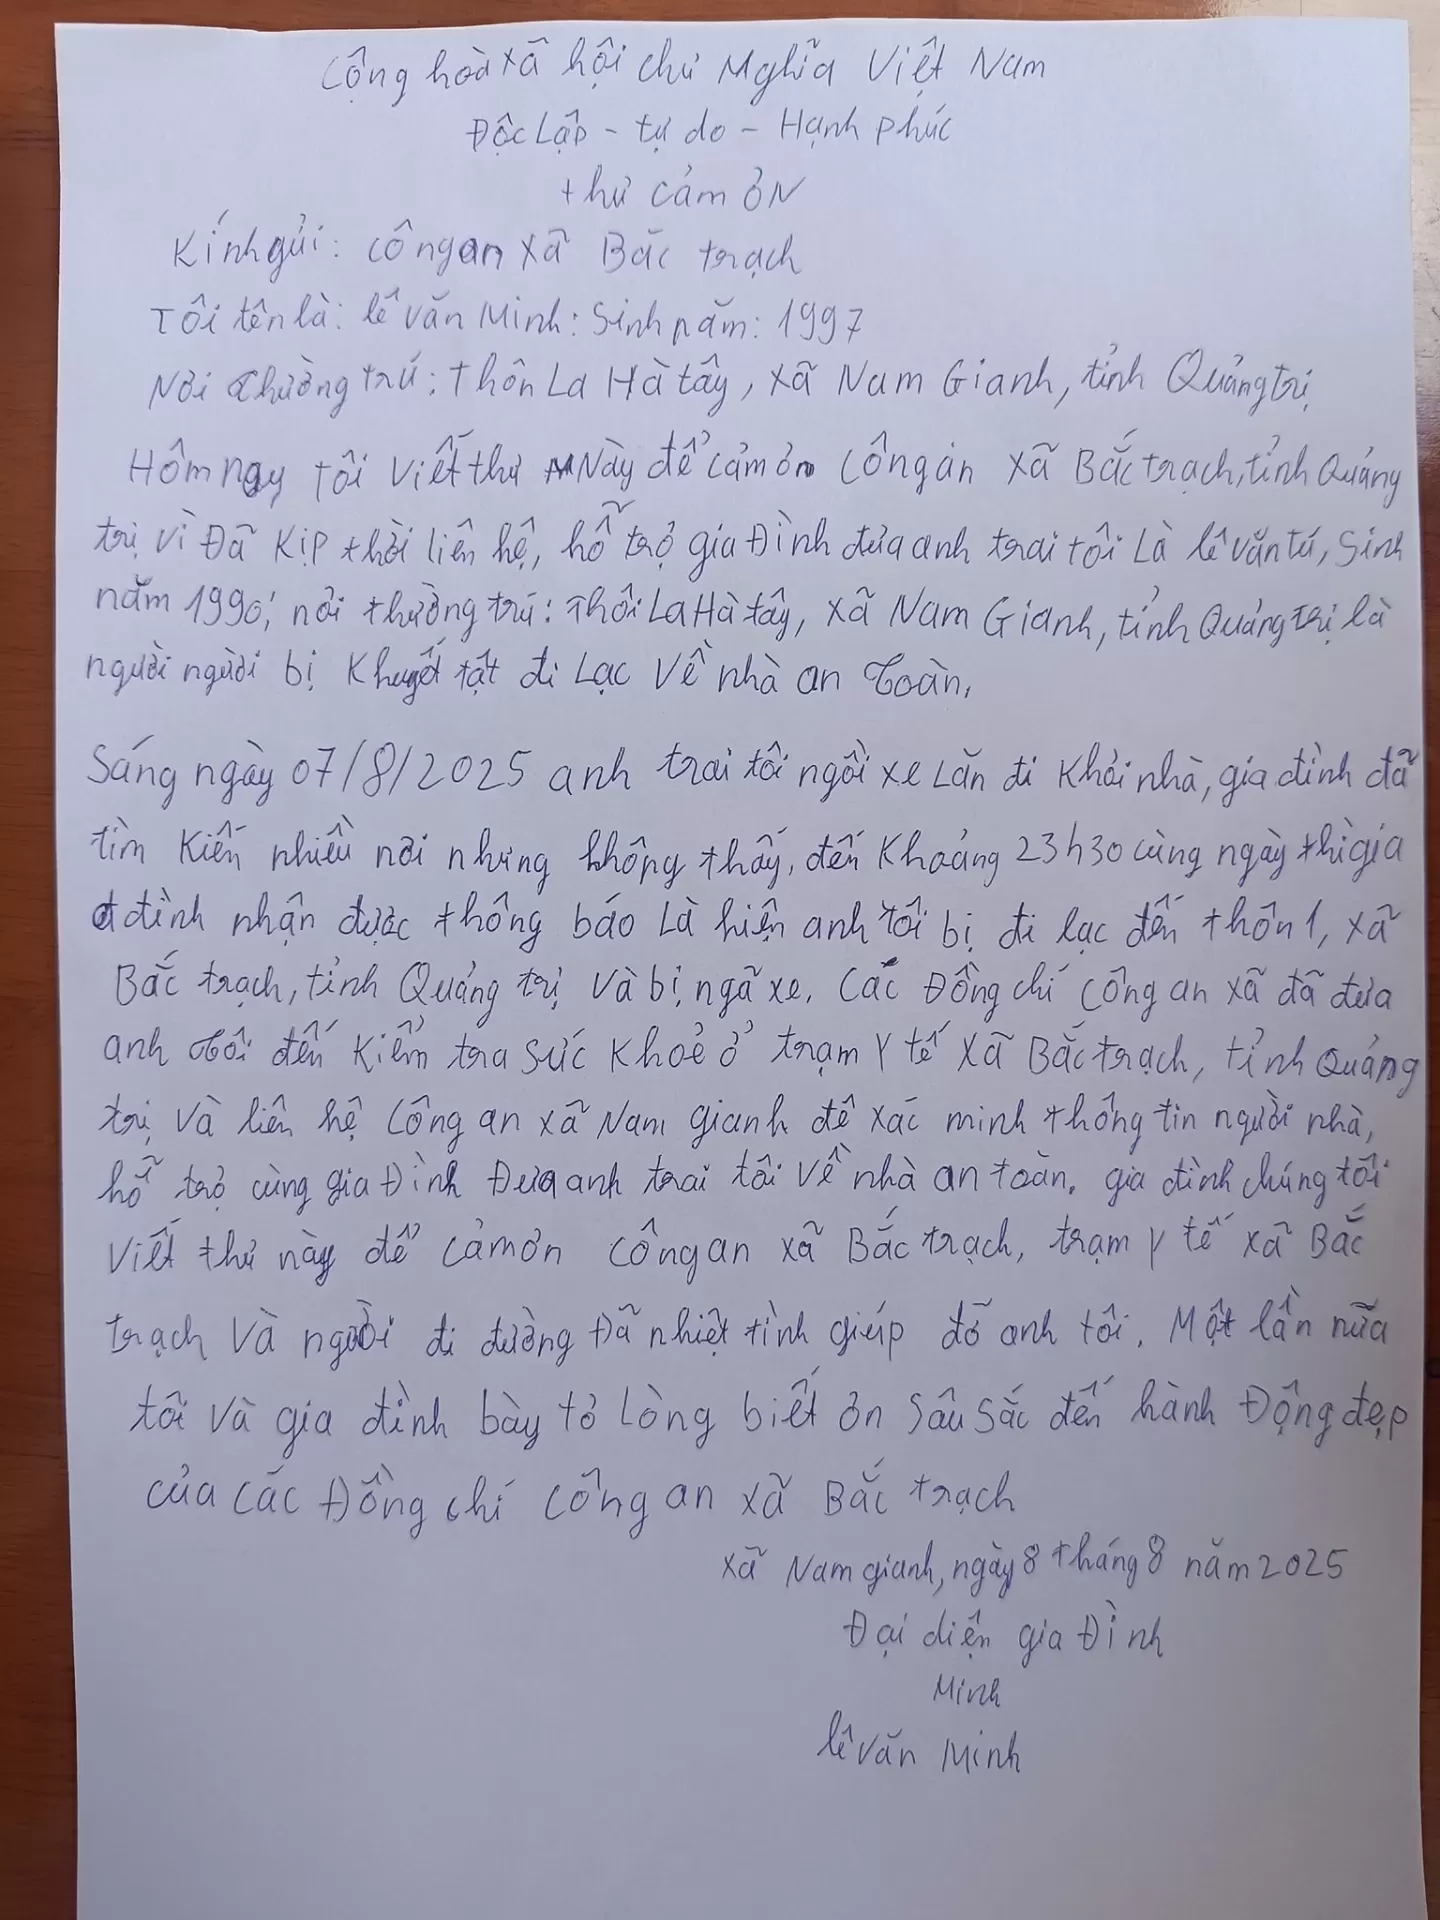 Cộng hoà xã hội chủ Nghĩa Việt Nam
Độc Lập - tự do - Hạnh phúc
thư cảm ơN
Kính gửi: Công an xã Bắc trạch
Tôi tên là: lê văn Minh: Sinh năm: 1997
Nơi thường trú: thôn La Hà tây, xã Nam Gianh, tỉnh Quảng trị
Hôm nay tôi viết thư Này để cảm ơn Công an xã Bắc trạch, tỉnh Quảng
trị vì Đã kịp thời liên hệ, hỗ trợ gia Đình đưa anh trai tôi Là lê văn tú, Sinh
năm 1990; nơi thường trú: Thôi La Hà tây, xã Nam Gianh, tỉnh Quảng trị là
người người bị khuyết tật đi Lạc về nhà an toàn,
Sáng ngày 07/8/2025 anh trai tôi ngồi xe Lăn đi khỏi nhà, gia đình đã
tìm kiến nhiều nơi nhưng không thấy, đến khoảng 23h30 cùng ngày thì gia
đ đình nhận được thông báo Là hiện anh tôi bị đi lạc đến thôn 1, xã
Bắc trạch, tỉnh Quảng trị và bị ngã xe. Các Đồng chí Công an xã đã đưa
anh tôi đến kiểm tra sức khoẻ ở trạm y tế xã Bắc trạch, tỉnh Quảng
trị và liên hệ Công an xã Nam gianh để xác minh thông tin người nhà,
hỗ trợ cùng gia Đình Đưa anh trai tôi về nhà an toàn. gia đình chúng tôi
viết thư này để cảm ơn Công an xã Bắc trạch, trạm y tế xã Bắc
trạch và người đi đường Đã nhiệt tình giúp đỡ anh tôi. Một lần nữa
tôi và gia đình bày tỏ lòng biết ơn sâu sắc đến hành Động đẹp
của các Đồng chí Công an xã Bắc trạch
xã Nam gianh, ngày 8 tháng 8 năm 2025
Đại diện gia Đình
Minh
lê văn Minh